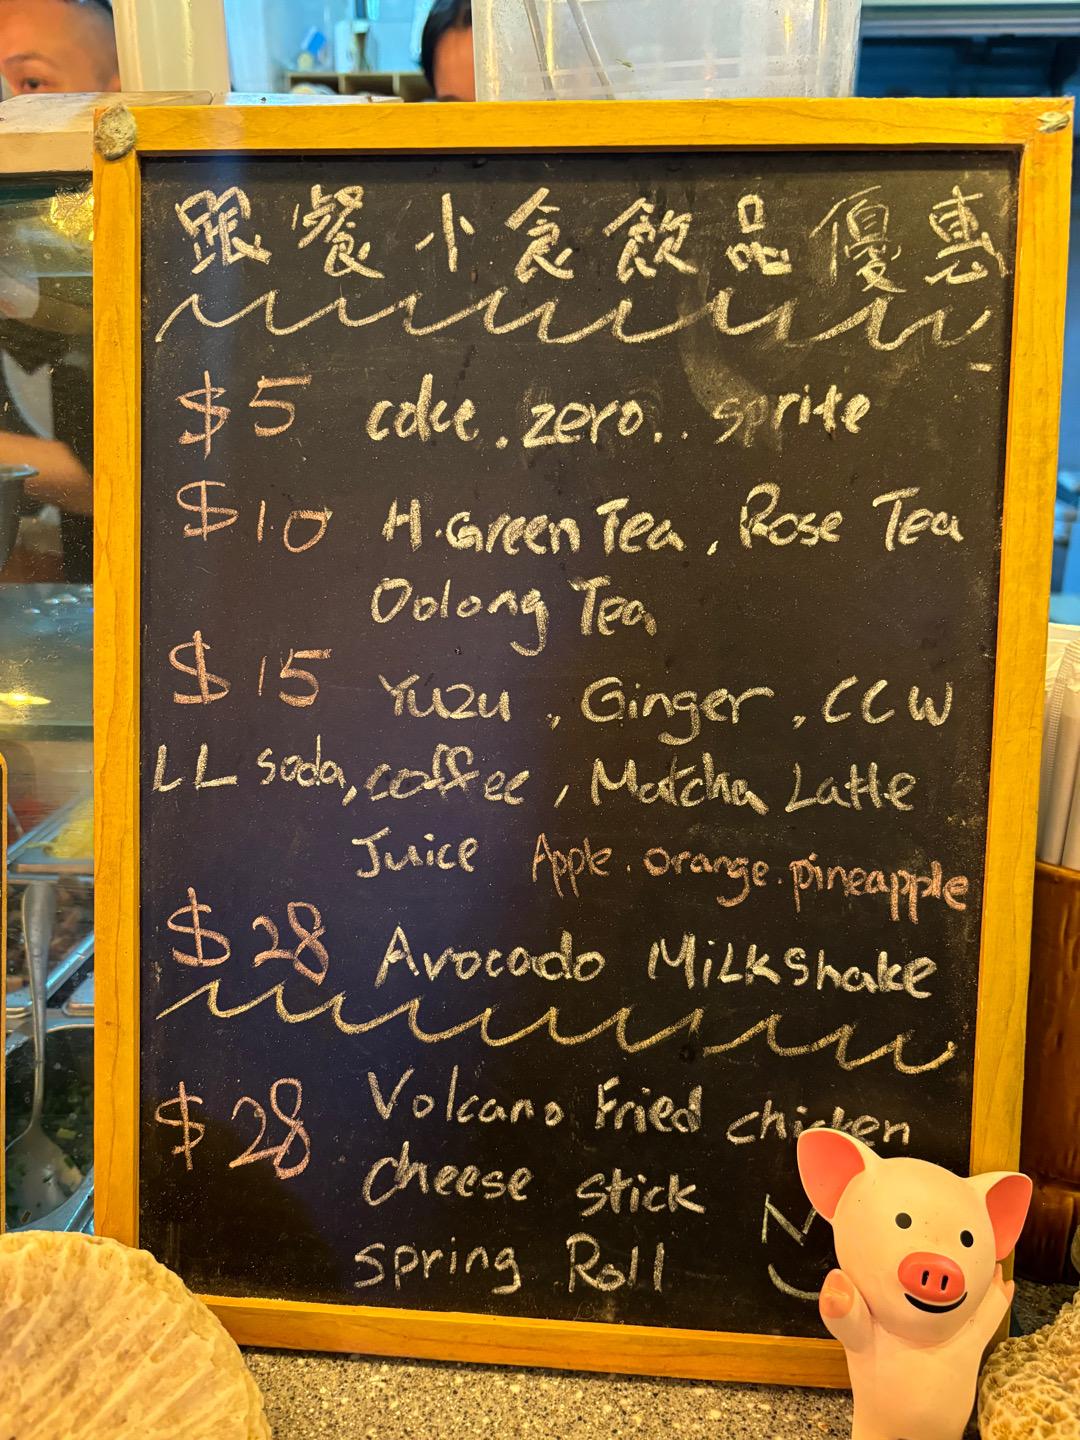 跟餐小食飲品優惠
$5 coke. zero.. sprite
$10 H.Green Tea, Rose Tea
Oolong Tea
$15 Yuzu, Ginger, CCW
LL soda, coffee, Matcha Latte
Juice Apple. orange. pineapple
$28 Avocado MilkShake
$28 Volcano Fried chicken
cheese stick
spring Roll